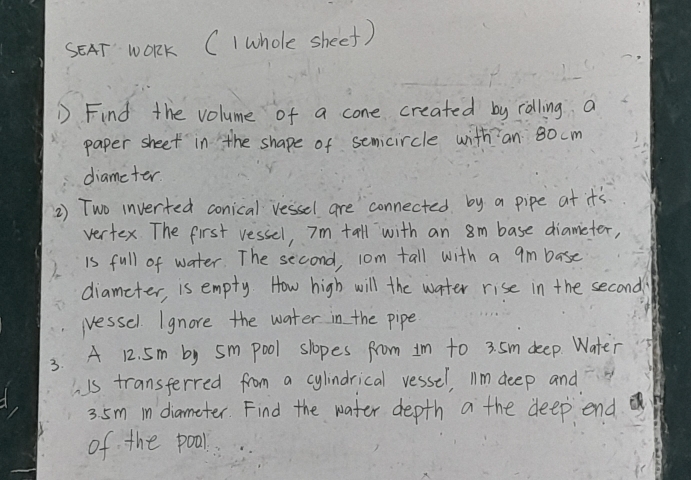 SEAT WORK ( 1 whole sheet)
1) Find the volume of a cone created by rolling a
paper sheet in the shape of semicircle with an 80cm
diameter.
2) Two inverted conical vessel are connected by a pipe at it's
vertex. The first vessel, 7m tall with an 8m base diameter,
is full of water. The second, 10m tall with a 9m base
diameter, is empty How high will the water rise in the second
vessel. Ignore the water in the pipe
3. A 12.5m by 5m pool slopes from 1m to 3.5m deep. Water
is transferred from a cylindrical vessel, 11m deep and
3.5m in diameter. Find the water depth a the deep end
of the pool.